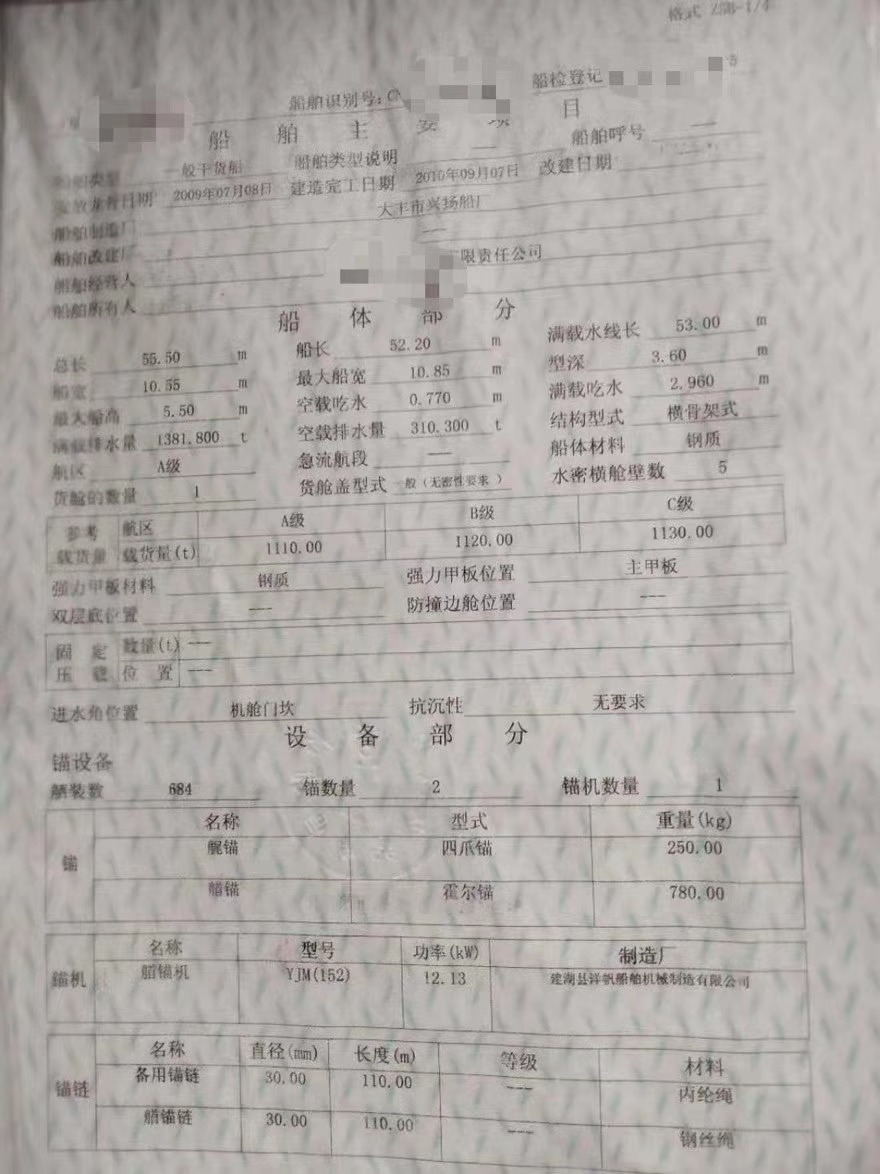 格式 ZSB-1/4
船舶识别号：CN 船检登记
船 舶 主 要 项 目
船舶类型 一般干货船 船舶类型说明 --- 船舶呼号 ---
安放龙骨日期 2009年07月08日 建造完工日期 2010年09月07日 改建日期 ---
船舶制造厂 大丰市兴扬船厂
船舶改建厂 ---
船舶经营人 限责任公司
船舶所有人
船 体 部 分
总长 55.50 m 船长 52.20 m 满载水线长 53.00 m
船宽 10.55 m 最大船宽 10.85 m 型深 3.60 m
最大船高 5.50 m 空载吃水 0.770 m 满载吃水 2.960 m
满载排水量 1381.800 t 空载排水量 310.300 t 结构型式 横骨架式
航区 A级 急流航段 --- 船体材料 钢质
货舱的数量 1 货舱盖型式 一般（无密性要求） 水密横舱壁数 5
参考载货量 航区 A级 B级 C级
载货量(t) 1110.00 1120.00 1130.00
强力甲板材料 钢质 强力甲板位置 主甲板
双层底位置 --- 防撞边舱位置 ---
固定压载 数量(t) ---
位置 ---
进水角位置 机舱门坎 抗沉性 无要求
设 备 部 分
锚设备
舾装数 684 锚数量 2 锚机数量 1
锚 名称 型式 重量(kg)
艉锚 四爪锚 250.00
艏锚 霍尔锚 780.00
锚机 名称 型号 功率(kW) 制造厂
艏锚机 YJM(152) 12.13 建湖县洋帆船舶机械制造有限公司
锚链 名称 直径(mm) 长度(m) 等级 材料
备用锚链 30.00 110.00 --- 内纶绳
艏锚链 30.00 110.00 --- 钢丝绳